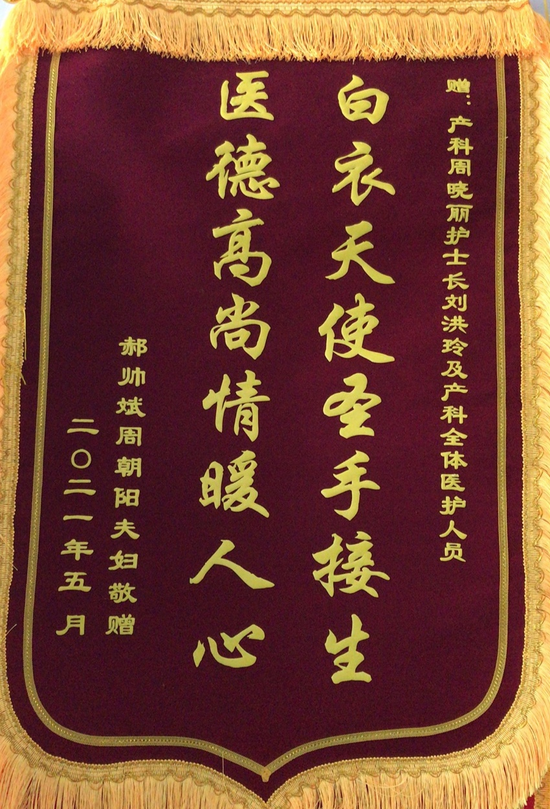 赠：产科周晓丽护士长刘洪玲及产科全体医护人员
白衣天使圣手接生
医德高尚情暖人心
郝帅斌周朝阳夫妇敬赠
二〇二一年五月